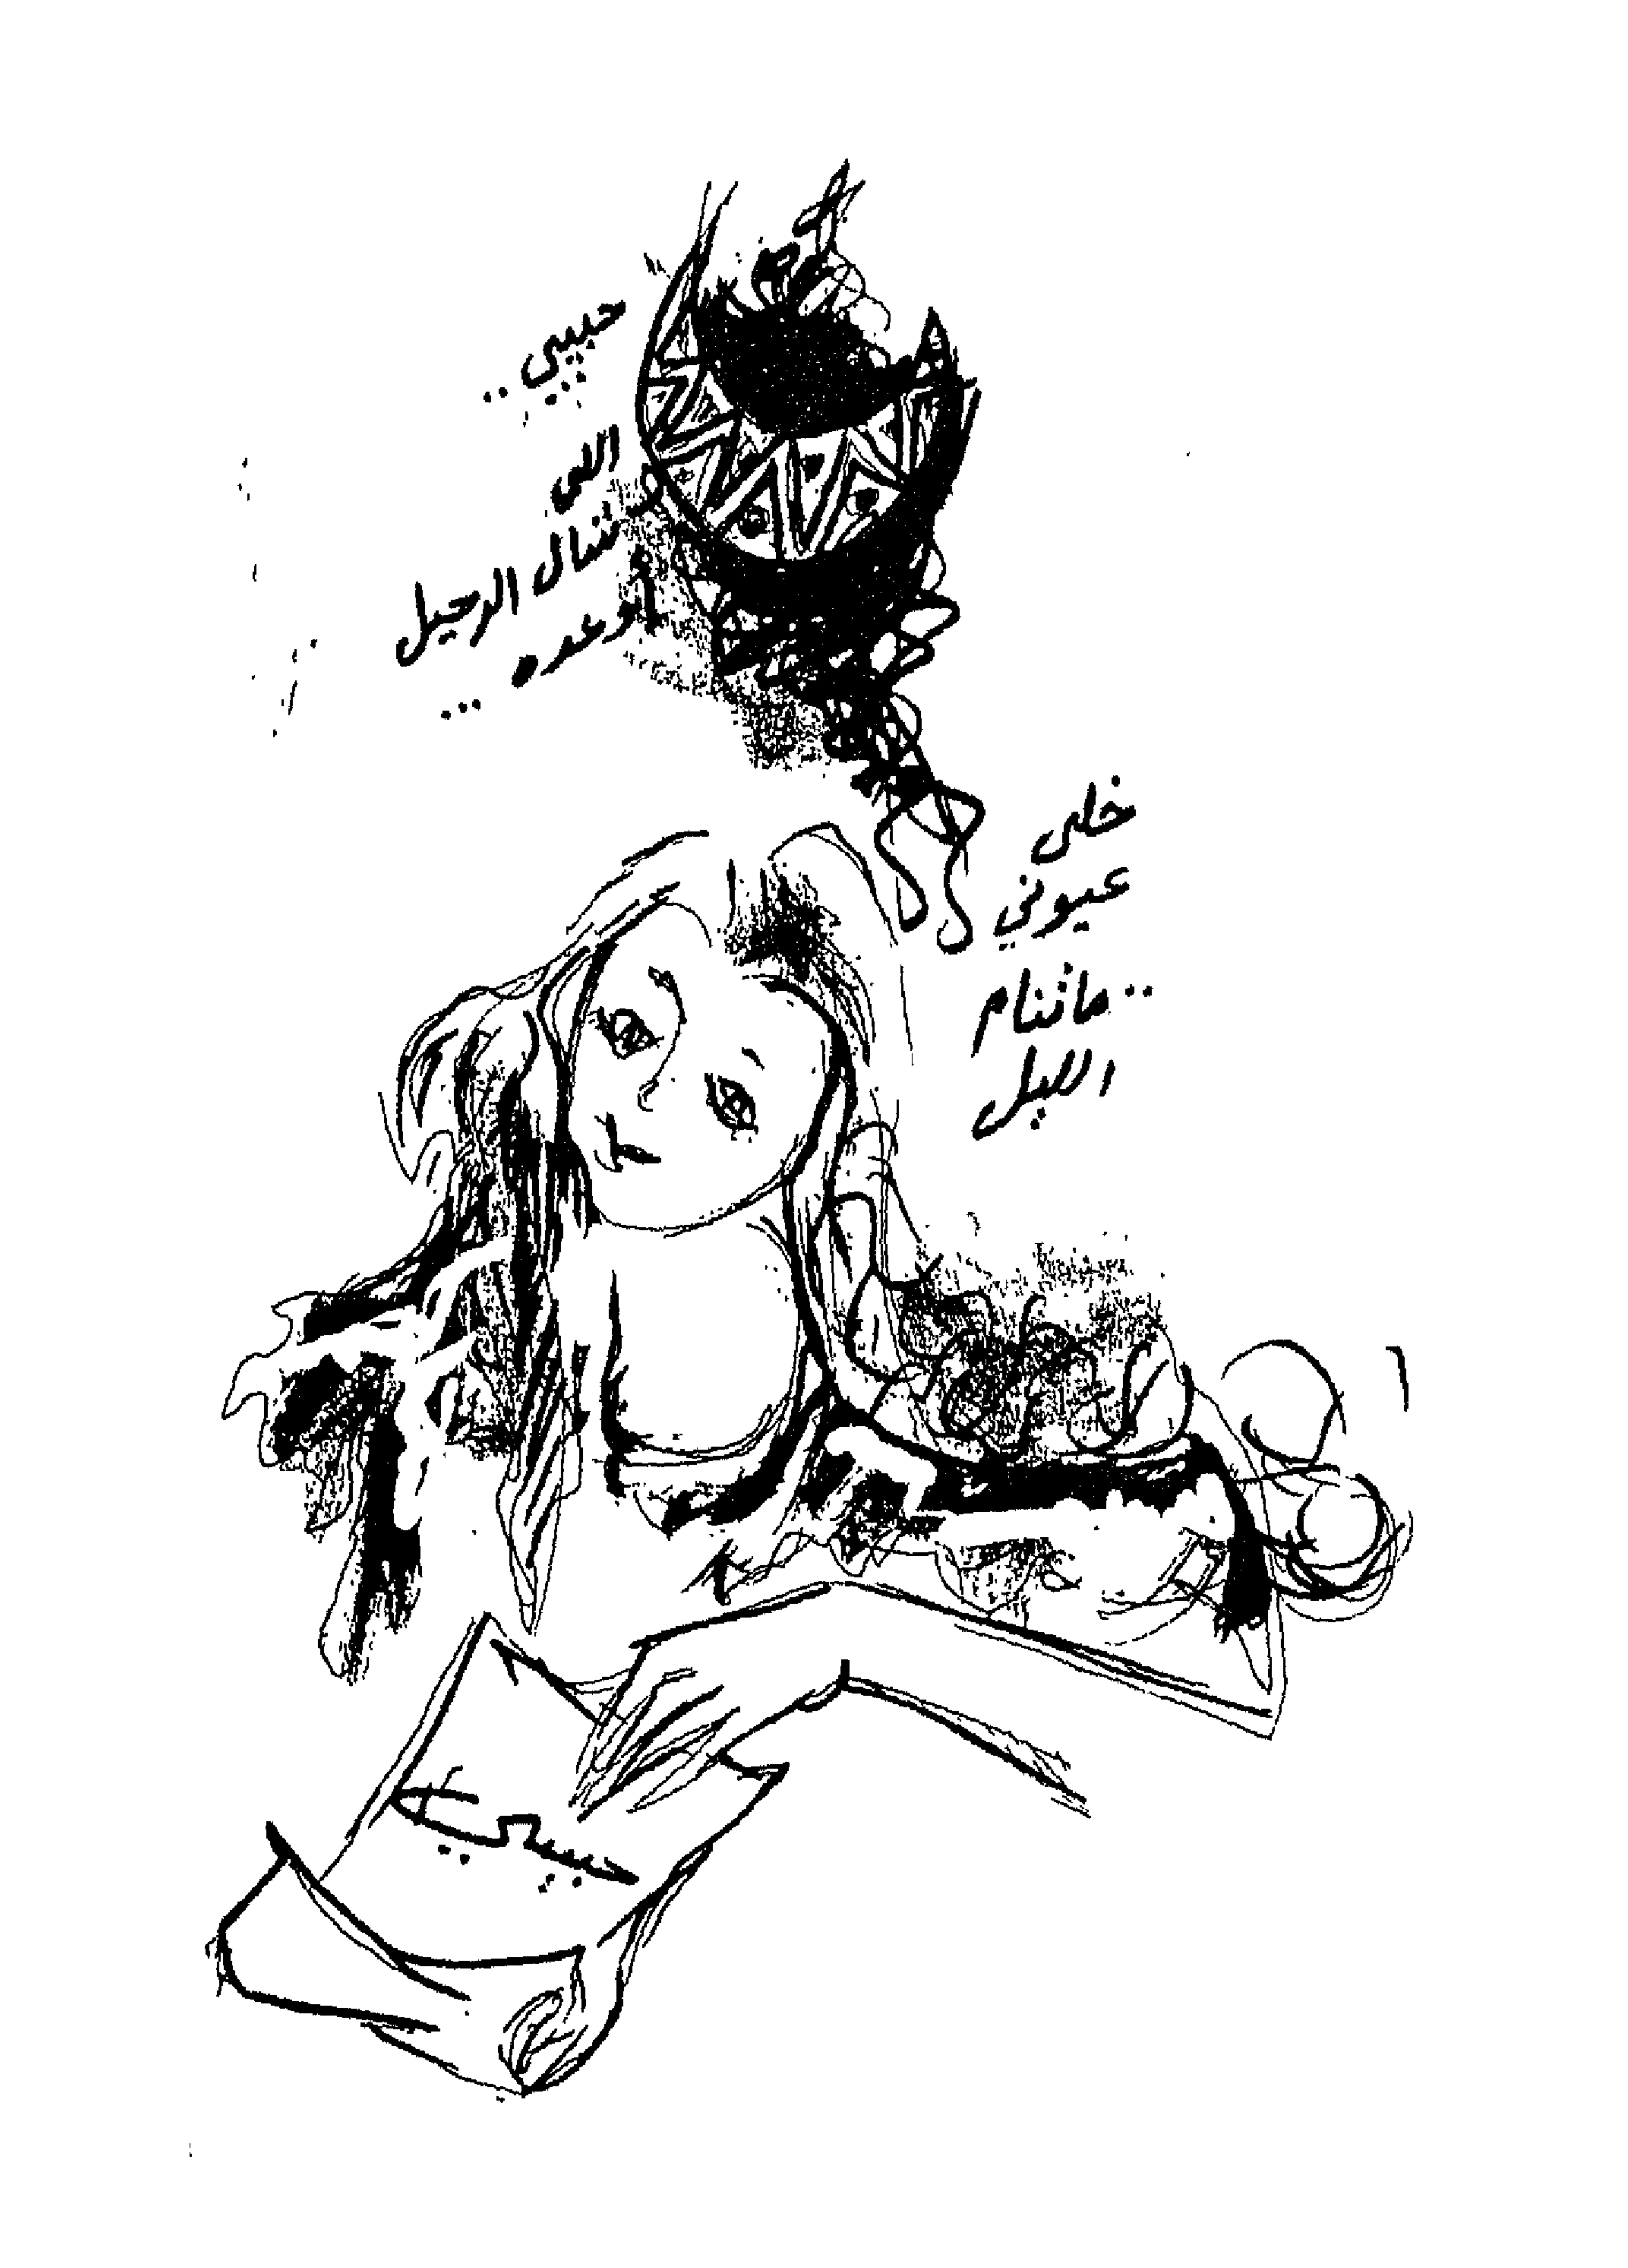 حبيبي ..
اللي
شال الرحيل
أوعده ...
خلى
عيوني
.. ماتنام
الليل
حبيبي